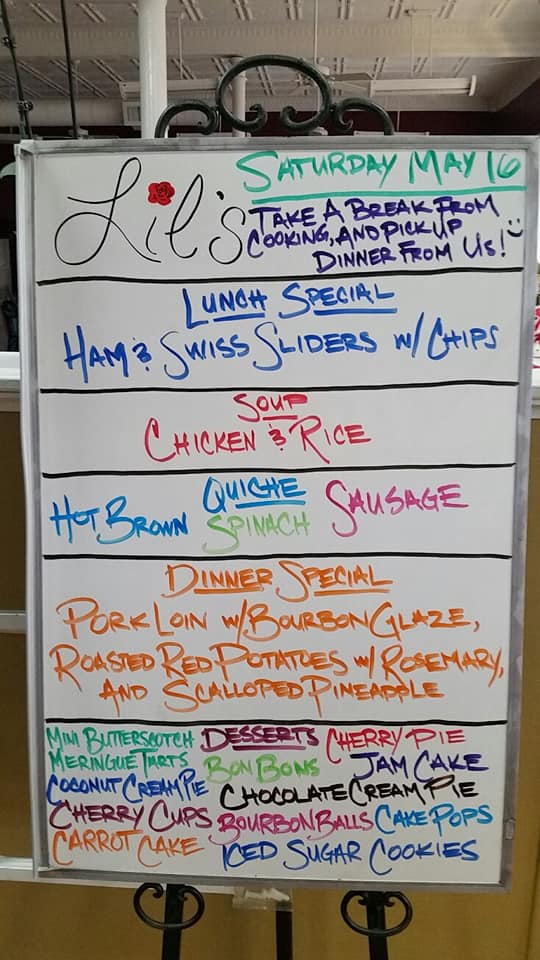 Lil's
SATURDAY MAY 16
TAKE A BREAK FROM
COOKING, AND PICK UP
DINNER FROM US!
LUNCH SPECIAL
HAM & SWISS SLIDERS W/ CHIPS
SOUP
CHICKEN & RICE
QUICHE
HOT BROWN SPINACH SAUSAGE
DINNER SPECIAL
PORK LOIN W/ BOURBON GLAZE,
ROASTED RED POTATOES W/ ROSEMARY,
AND SCALLOPED PINEAPPLE
DESSERTS
MINI BUTTERSCOTCH
MERINGUE TARTS
CHERRY PIE
BON BONS
JAM CAKE
COCONUT CREAM PIE
CHOCOLATE CREAM PIE
CHERRY CUPS
BOURBON BALLS
CAKE POPS
CARROT CAKE
ICED SUGAR COOKIES